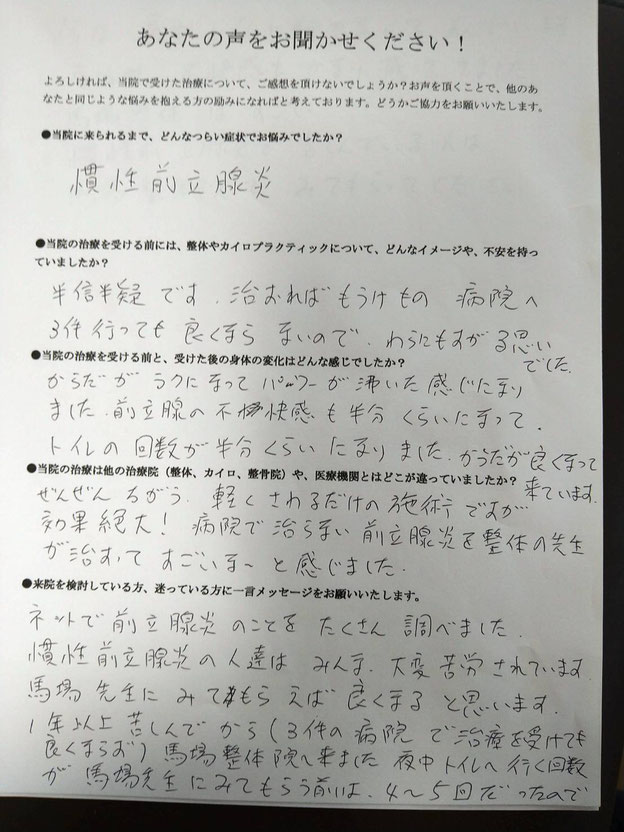 あなたの声をお聞かせください！
よろしければ、当院で受けた治療について、ご感想を頂けないでしょうか？お声を頂くことで、他のあ
なたと同じような悩みを抱える方の励みになればと考えております。どうかご協力をお願いいたします。
●当院に来られるまで、どんなつらい症状でお悩みでしたか？
慣性前立腺炎
●当院の治療を受ける前には、整体やカイロプラクティックについて、どんなイメージや、不安を持っ
ていましたか？
半信半疑です．治おればもうけもの 病院へ
3件行っても良くなら ないので．わらにもすがる思い
でした．
●当院の治療を受ける前と、受けた後の身体の変化はどんな感じでしたか？
からだが ラクになって パーワーが沸いた感じになり
ました．前立腺の不快感も半分くらいになって．
トイレの回数が半分くらい になりました．からだが良くなって
来ています．
●当院の治療は他の治療院（整体、カイロ、整骨院）や、医療機関とはどこが違っていましたか？
ぜんぜんちがう．軽くさわるだけの施術ですが
効果絶大！病院で治らない前立腺炎を整体の先生
が治すってすごいな〜と感じました．
●来院を検討している方、迷っている方に一言メッセージをお願いいたします。
ネットで前立腺炎のことをたくさん調べました．
慣性前立腺炎の人達はみんな．大変苦労されています．
馬場先生にみてもらえば良くなると思います．
1年以上苦しんでから（3件の病院で治療を受けても
良くならず）馬場整体院へ来ました 夜中トイレへ行く回数
が馬場先生にみてもらう前は．4〜5回だったので